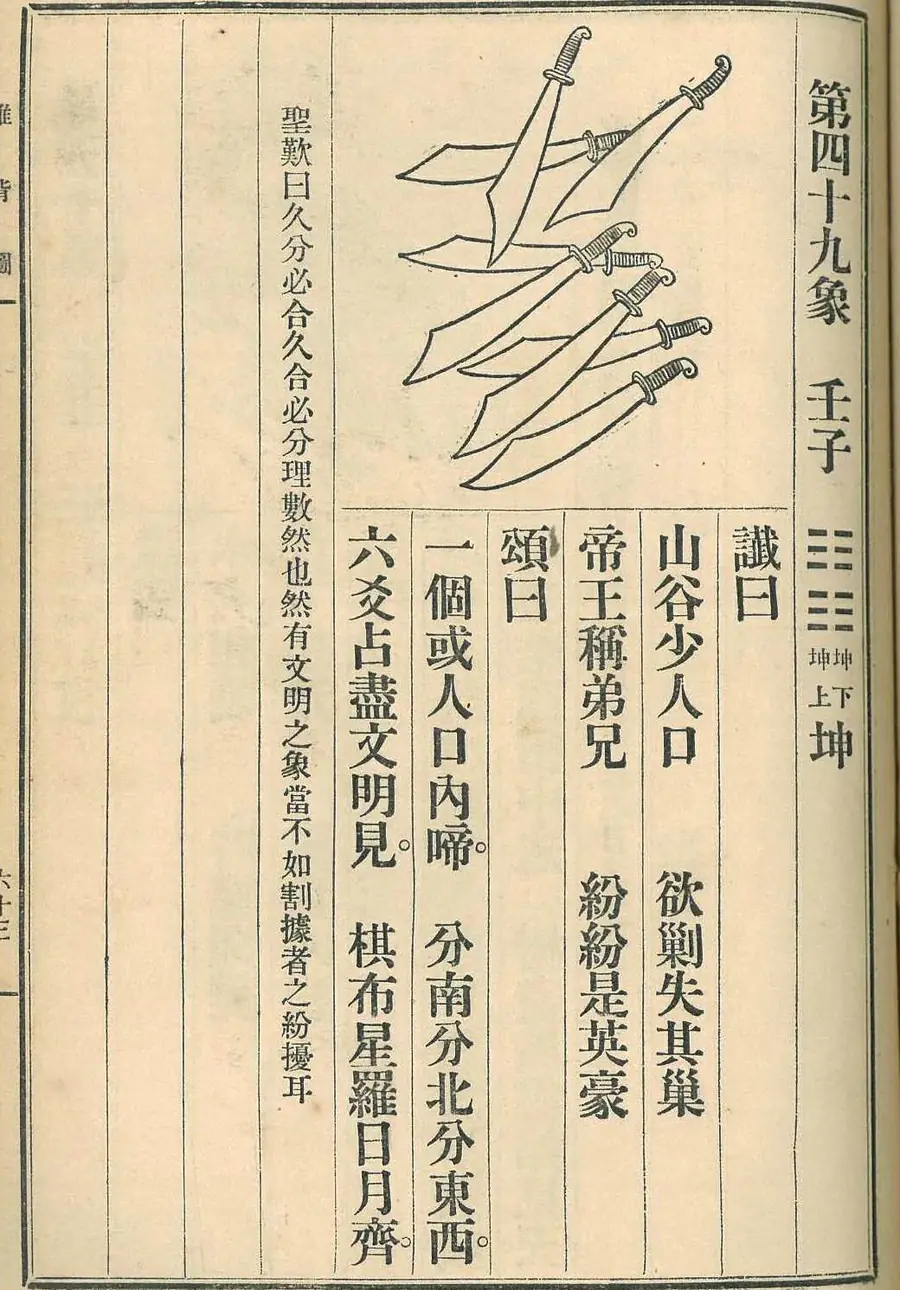 第四十九象 壬子 坤下 坤上 坤
讖曰
山谷少人口 欲剿失其巢
帝王稱弟兄 紛紛是英豪
頌曰
一個或人口內啼。 分南分北分東西。
六爻占盡文明見。 棋布星羅日月齊。
聖歎曰久分必合久合必分理數然也然有文明之象當不如割據者之紛擾耳